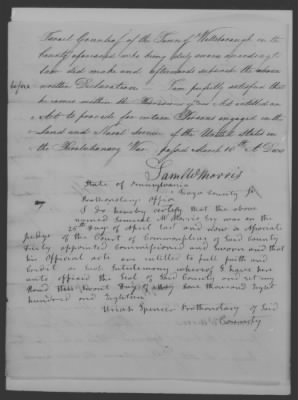 Israel Greenleaf of the Town of Wellsborough in the
County aforesaid who being duly sworn according to
law did make and afterwards subscribe the above
before
written Declaration - I am perfectly satisfied that
he comes within the Provisions of an Act entitled an
Act to provide for certain Persons engaged in the
Land and Naval Service of the United States in
the Revolutionary War, passed March 18th A D
Saml W Morris
State of Pennsylvania
Tioga County ss
Prothonotary office
I do hereby certify that the above
named Samuel W Morris Esq was on the
Day of April last and now is Associate
Judge of the Court of Common pleas of Said County
duly appointed commissioned and sworn and that
his Official acts are entitled to full faith and
credit in Testimony whereof I have here
unto affixed the Seal of Said County and set my
Hand this Day of May One thousand Eight
hundred and Eighteen
Uriah Spencer Prothonotary of Said
County